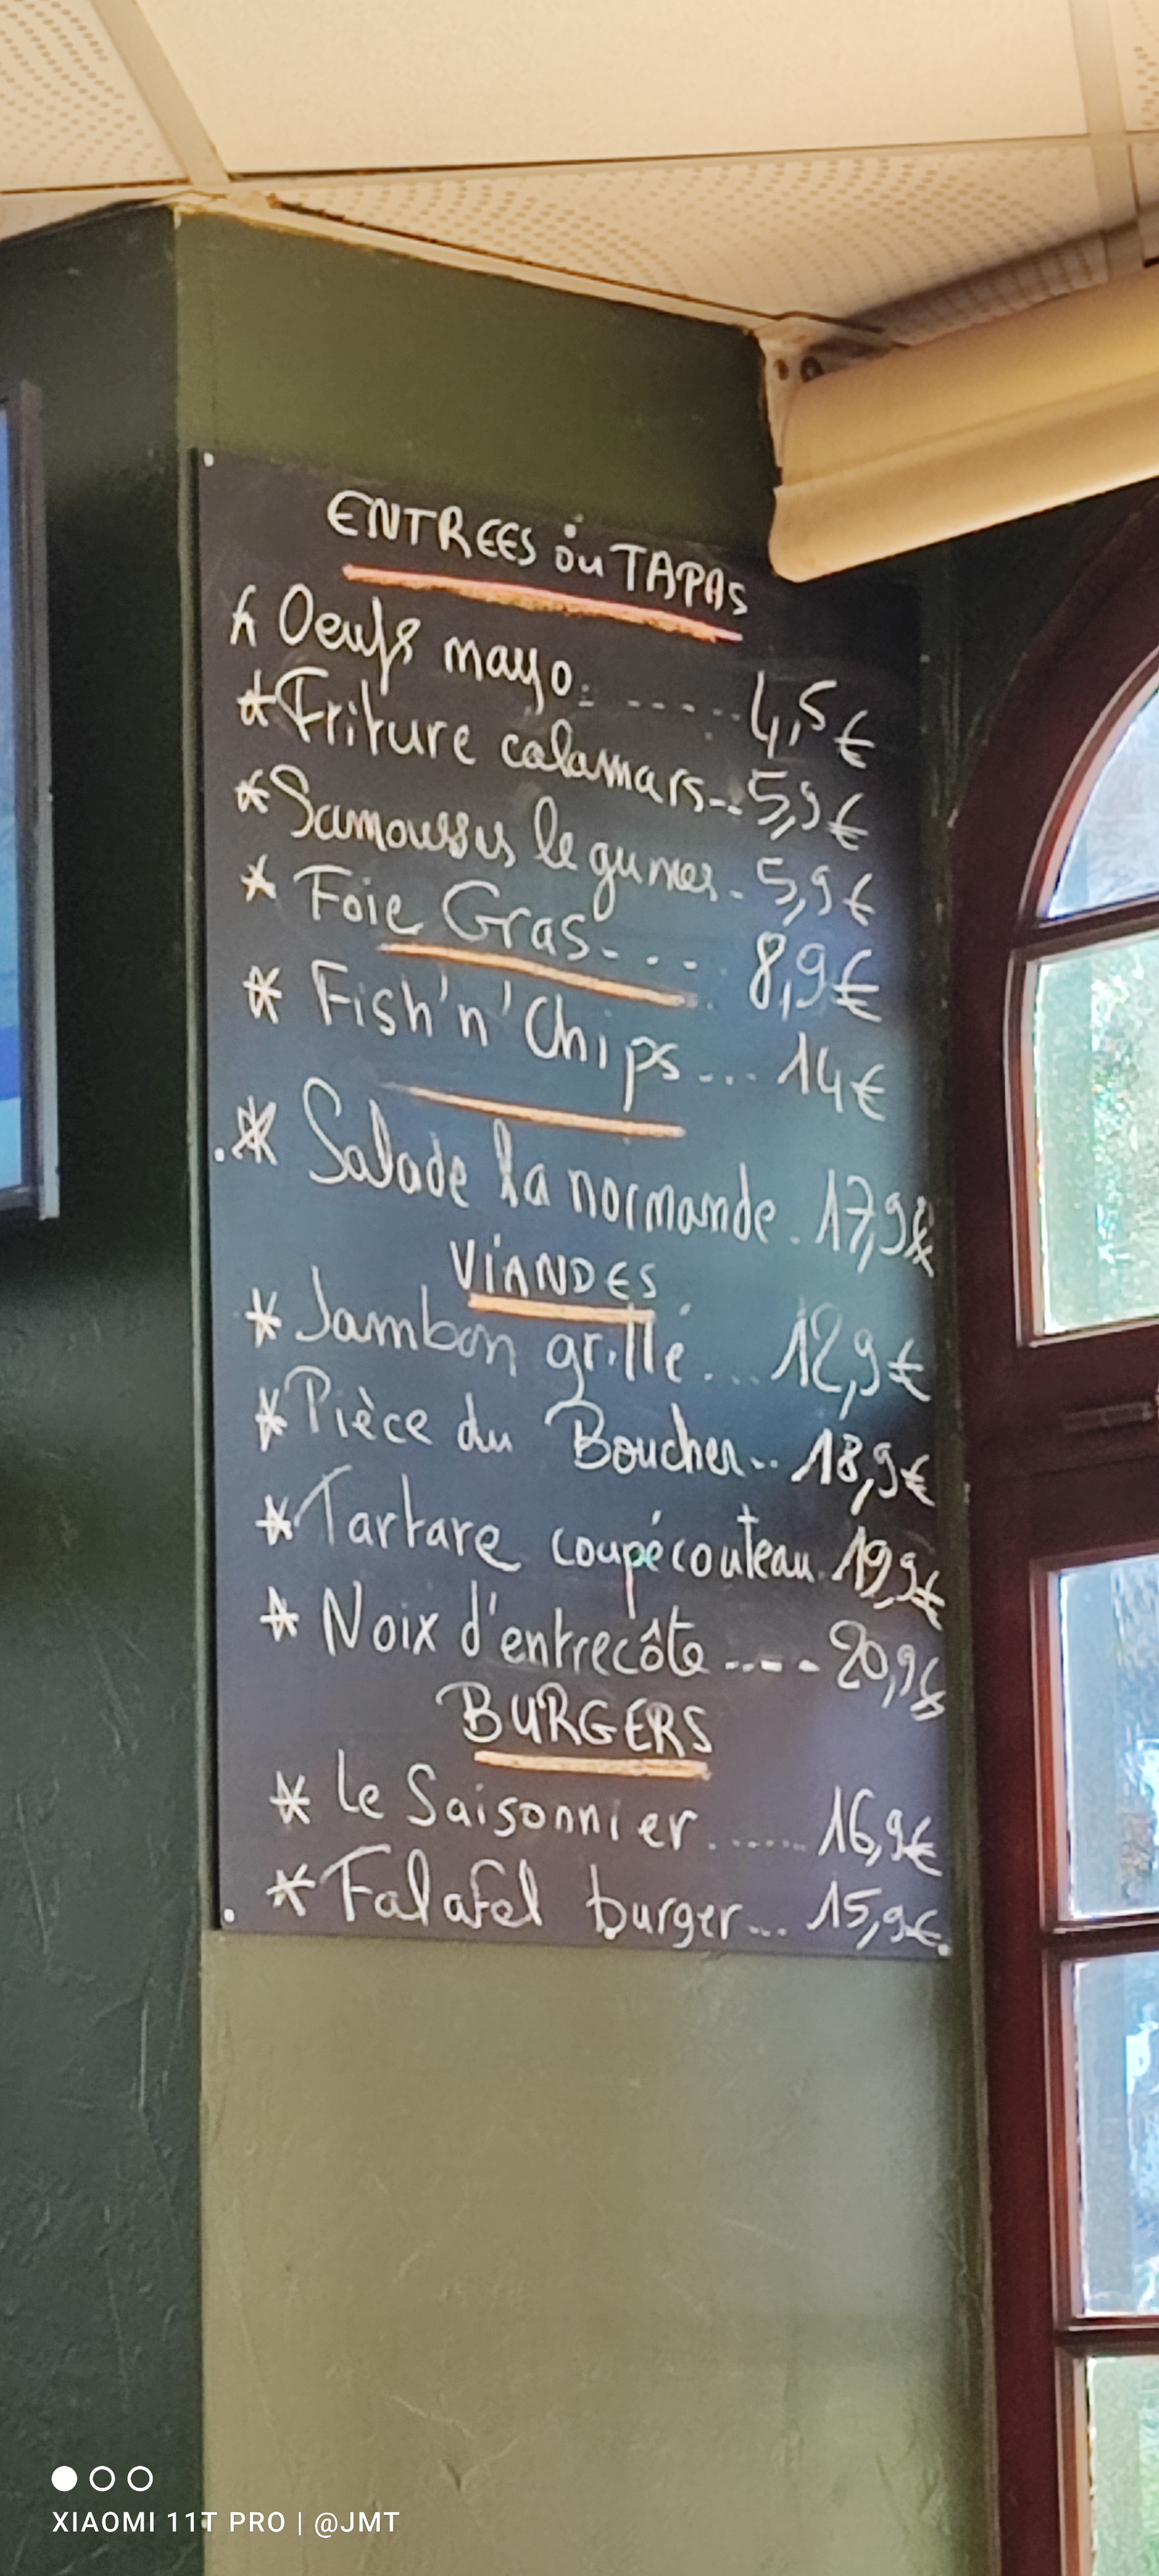 ENTREES ou TAPAS
* Oeufs mayo. ..... 4,5€
* Friture calamars... 5,9€
* Samoussas legumes. 5,9€
* Foie Gras.... 8,9€
* Fish'n'Chips... 14€
* Salade la normande. 17,9€
VIANDES
* Jambon grillé... 12,9€
* Pièce du Boucher.. 18,9€
* Tartare coupé couteau. 19,9€
* Noix d'entrecôte .... 20,9€
BURGERS
* Le Saisonnier....... 16,9€
* Falafel burger... 15,9€
XIAOMI 11T PRO | @JMT